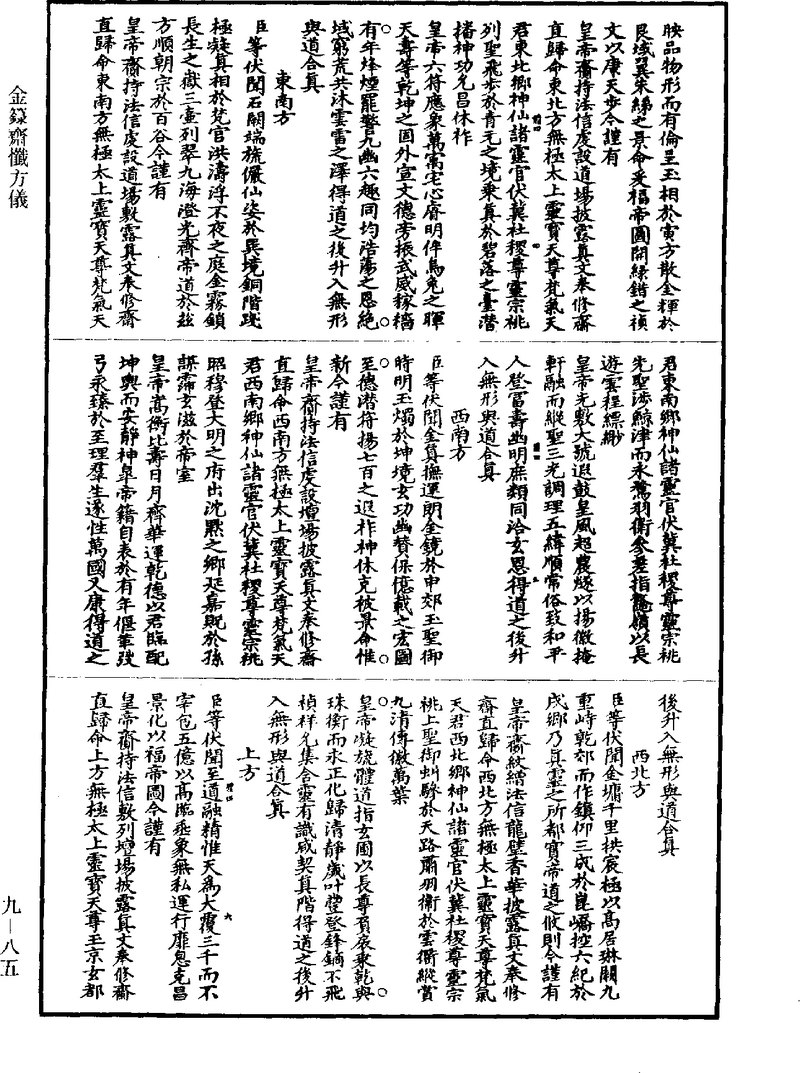 金籙齋懺方儀
九—八五
腴品物形而有倫呈玉相於寅方散金輝於
艮域翼朱綈之景命受福帝圖開綠錯之禎
文以康天步今謹有
皇帝齋持法信虔設道場披露真文奉修齋
直歸命東北方無極太上靈寶天尊梵氣天
君東北鄉神仙諸靈官伏冀社稷尊靈宗祧
列聖飛步於青元之境乘真於碧落之臺潛
播神功允昌休祚
皇帝六符應象萬㝢宅心睿明侔烏兔之暉
天壽等乾坤之固外宣文德旁振武威稼穡
有年烽煙罷警九幽六趣同均浩蕩之恩絶
域窮荒共沐雲雷之澤得道之後升入無形
與道合真
東南方
臣等伏聞石闕端旒儼仙姿於異境銅階踐
極凝真相於梵官洪濤浮不夜之庭金霧鎖
長生之嶽三壼列翠九海澄光齊帝道於兹
方順朝宗於百谷今謹有
皇帝齋持法信虔設道場敷露真文奉修齋
直歸命東南方無極太上靈寶天尊梵氣天
君東南鄉神仙諸靈官伏冀社稷尊靈宗祧
先聖涉鯨津而永騖羽衛參差指鼇嶺以長
遊雲程縹緲
皇帝光敷大號遐鼓皇風超農燧以揚徽掩
軒融而縱聖三光調理五緯順常俗致和平
人登富壽幽明庶類同洽玄恩得道之後升
入無形與道合真
西南方
臣等伏聞金負撫運朗金鏡於申郊玉聖御
時明玉燭於坤境玄功幽贊保億載之宏圖
至德潜符揚七百之遐祚神休克被景命惟
新今謹有
皇帝齋持法信虔設壇場披露真文奉修齋
直歸命西南方無極太上靈寶天尊梵氣天
君西南鄉神仙諸靈官伏冀社稷尊靈宗祧
昭穆登大明之府出沈黙之鄉延嘉貺於孫
謀霈玄滋於帝室
皇帝嵩衡比壽日月齊華運乾德以君臨配
坤輿而安靜神皐帝籍自表於有年偃革弢
弓永臻於至理羣生遂性萬國乂康得道之
後升入無形與道合真
西北方
臣等伏聞金墉千里拱宸極以高居琳闕九
重峙乾郊而作鎮仰三成於崑嶠控六紀於
戌鄉乃真靈之所都實帝道之攸則今謹有
皇帝齋紋繒法信龍璧香華披露真文奉修
齋直歸命西北方無極太上靈寶天尊梵氣
天君西北鄉神仙諸靈官伏冀社稷尊靈宗
祧上聖御虯驂於天路肅羽衛於雲衢縱賞
九清傳徽萬葉
皇帝凝旒體道指玄圃以長尊負扆乘乾與
珠衡而永正化歸清靜歲叶豐登鋒鏑不飛
禎祥允集含靈有識咸契真階得道之後升
入無形與道合真
上方
臣等伏聞至道融精惟天為大覆三千而不
宰包五億以高臨垂象無私運行靡息克昌
景化以福帝圖今謹有
皇帝齋持法信敷列壇場披露真文奉修齋
直歸命上方無極太上靈寶天尊玉京玄都